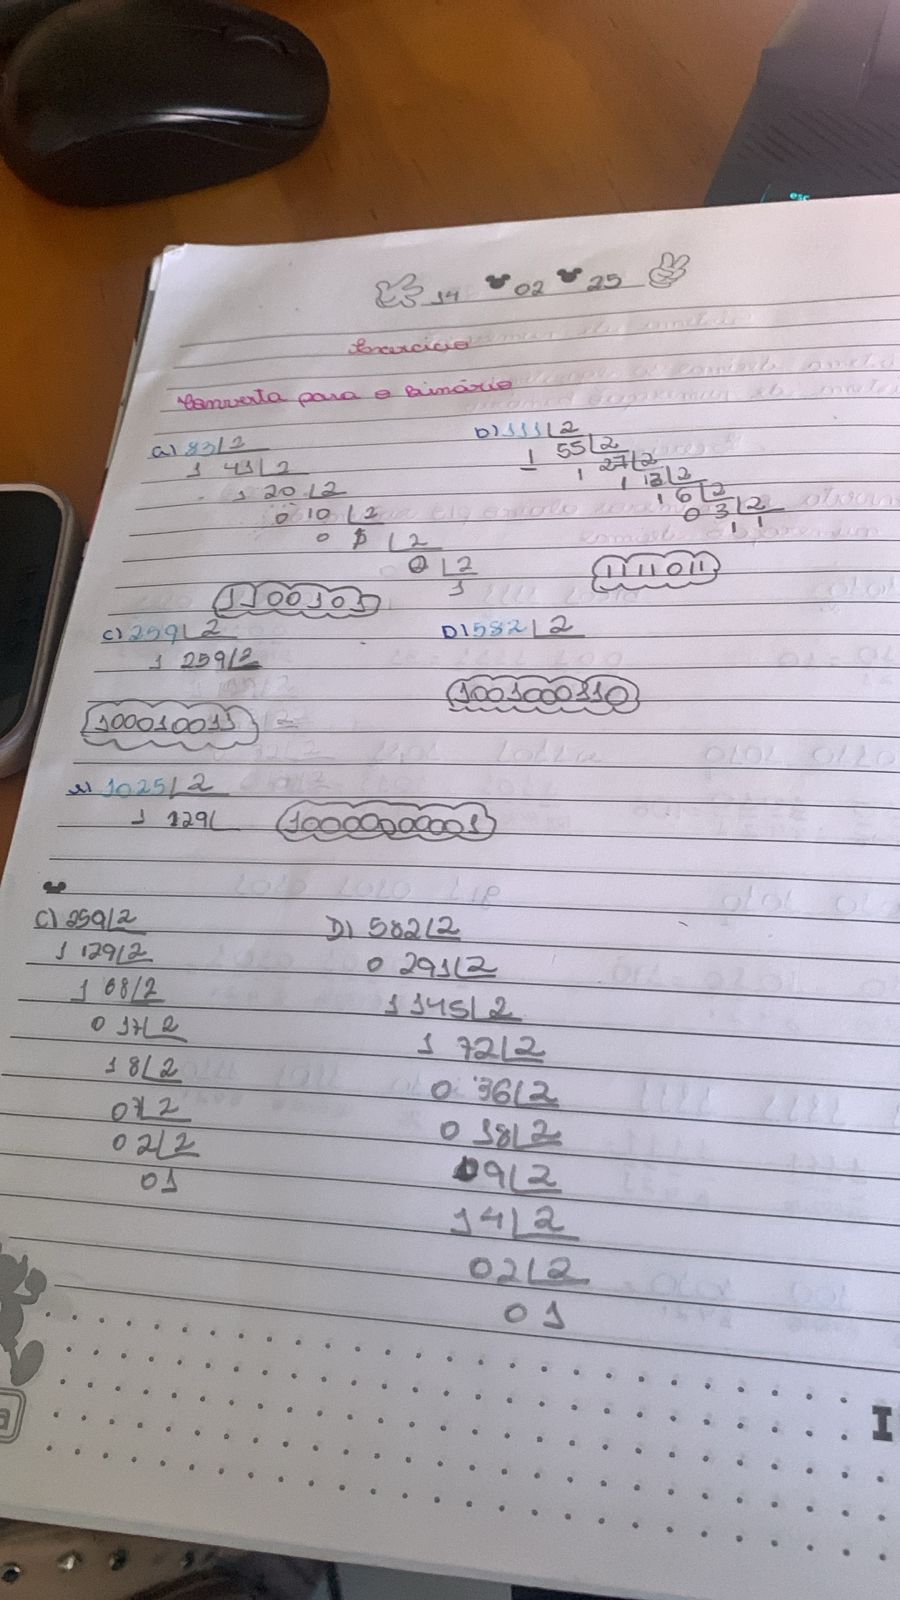 esc
14 02 25
Exercício
Converta para o Binário
a) 83 2
1 41 2
1 20 2
0 10 2
0 5 2
0 2
1
1100101
B) 111 2
1 55 2
1 27 2
1 13 2
1 6 2
0 3 2
1 1
1111011
C) 259 2
1 259 2
100010011
D) 582 2
1001000110
e) 1025 2
1 129
10000000001
C) 259 2
1 129 2
1 68 2
0 17 2
1 8 2
0 2
0 2 2
0 1
D) 582 2
0 291 2
1 145 2
1 72 2
0 36 2
0 18 2
9 2
1 4 2
0 2 2
0 1